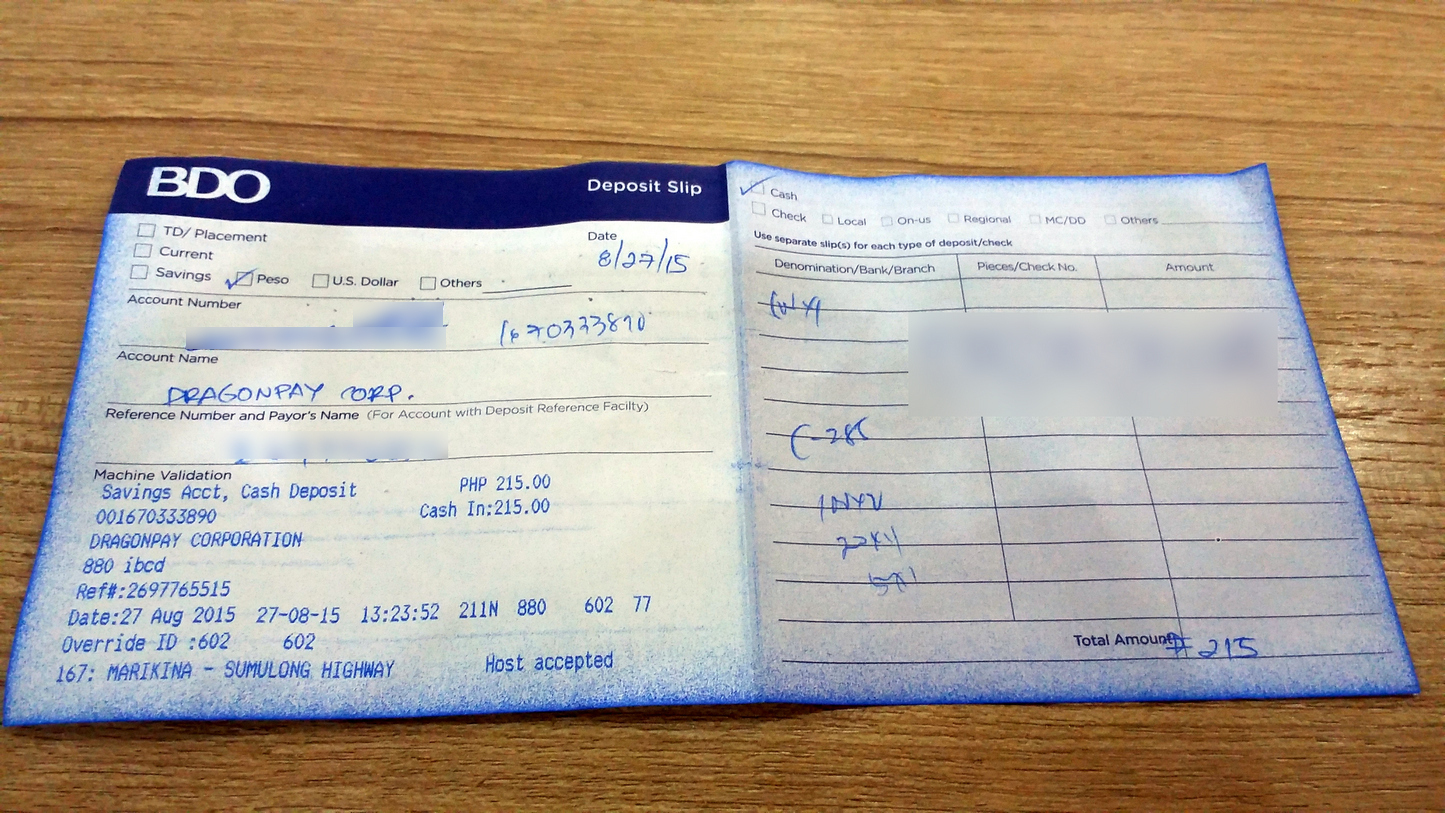 BDO
Deposit Slip
TD/ Placement
Current
Savings Peso U.S. Dollar Others
Date
8/27/15
Account Number
1670333890
Account Name
DRAGONPAY CORP.
Reference Number and Payor's Name (For Account with Deposit Reference Facilty)
Machine Validation
Savings Acct, Cash Deposit PHP 215.00
001670333890 Cash In:215.00
DRAGONPAY CORPORATION
880 ibcd
Ref#:2697765515
Date:27 Aug 2015 27-08-15 13:23:52 211N 880 602 77
Override ID :602 602
167: MARIKINA - SUMULONG HIGHWAY Host accepted
Cash
Check Local On-us Regional MC/DD Others
Use separate slip(s) for each type of deposit/check
Denomination/Bank/Branch Pieces/Check No. Amount
Total Amount 215